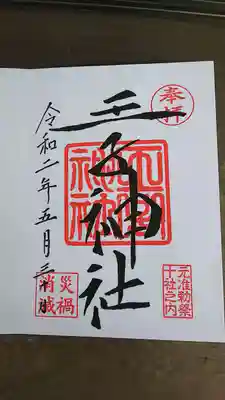 奉拝
王子神社
元准勅祭
十社之内
令和二年五月三十日
災禍
消滅